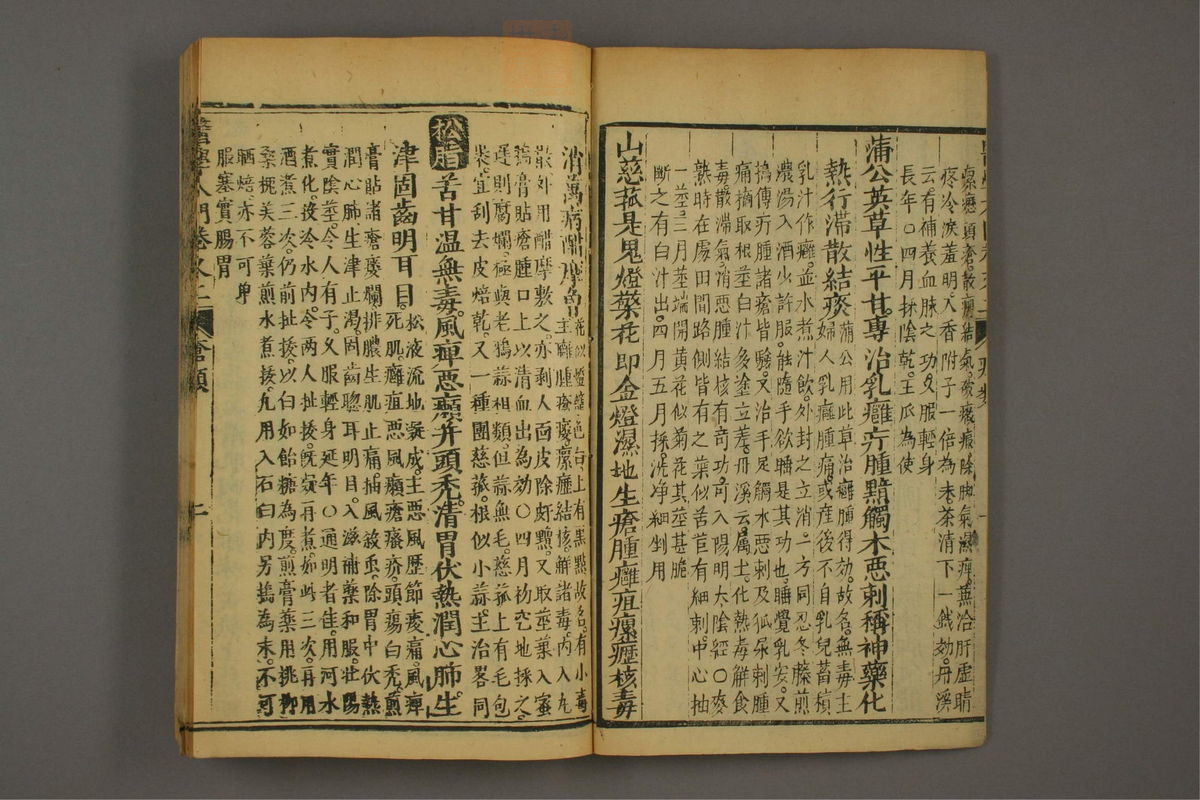 瘰癧頭瘡散癭結氣破癥瘕除脚氣濕痺蒸冶肝虛睛
疼冷淚羞明入香附子一倍為末茶清下一錢効丹溪
云有補養血脉之功久服輕身
長年〇四月採陰乾王瓜為使
蒲公英草性平甘專治乳癰疔腫黯觸木惡刺稱神藥化
熱行滯散結痰蒲公用此草治癰腫得効故名無毒主
婦人乳癰腫痛或産後不自乳兒蓄積
乳汁作癰並水煮汁飲外封之立消一方同忍冬藤煎
濃湯入酒少許服能隨手欲睡是其功也睡覺乳安又
搗傅疔腫諸瘡皆驗又治手足觸水惡刺及狐尿刺腫
痛摘取根莖白汁多塗立差丹溪云屬土化熱毒解食
毒散滯氣消惡腫結核有奇功可入陽明太陰經〇麥
熟時在處田間路側皆有之葉似苦苣有細刺中心抽
一莖三月莖端開黃花似菊花其莖甚脆
斷之有白汁出四月五月採洗净細剉用
山慈菰是鬼燈檠花即金燈濕地生瘡腫癰疽瘰癧核毒
消萬病醋摩
花似燈籠色白上有黑點故名有小毒
主癰腫瘡瘻瘰癧結核解諸毒内入丸
散外用醋摩敷之亦剥人面皮除皯䵳又取莖葉入蜜
搗膏貼瘡腫口上以清血出為効〇四月初空地採之
遲則腐爛極與老鴉蒜相類但蒜無毛慈菰上有毛包
裝宜刮去皮焙乾又一種團慈菰根似小蒜主治畧同
松脂苦甘温無毒風痺惡癩并頭禿清胃伏熱潤心肺生
津固齒明耳目松液流地凝成主惡風歷節痠痛風痺
死肌癰疽惡風癩瘡瘙疥頭瘍白禿煎
膏貼諸瘡瘻爛排膿生肌止痛抽風殺虫除胃中伏熱
潤心肺生津止渴固齒聰耳明目入滋補藥和服壯陽
實陰莖令人有子久服輕身延年〇通明者佳用河水
煮化投冷水内令两人扯拔既凝再煮如此三次再用
酒煮三次仍前扯拔以白如飴糖為度煎膏藥用桃柳
桑槐芙蓉葉煎水煮拔凡用入石臼内另搗為末不可
晒焙亦不可單
服塞實腸胃
醫學入門卷之二 瘡類